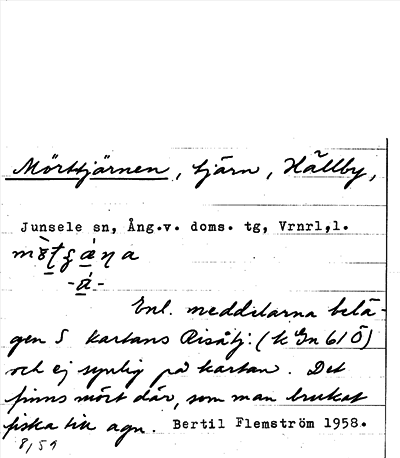 Mörttjärnen, tjärn, Hällby,
Junsele sn, Ång.v. doms. tg, Vrnrl,l.
Enl. meddelarna belä-
gen S kartans Risåtj: (k Gn 61 Ö)
och ej synlig på kartan. Det
finns mört där, som man brukat
fiska till agn. Bertil Flemström 1958.
8/59